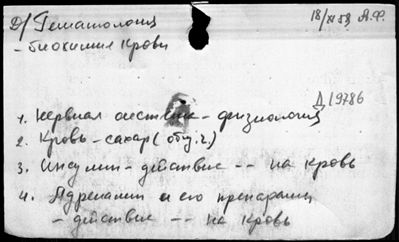 Д/ Гематология
- биохимия крови
18/XI 59 А.Ф.
Д 19786
1. Нервная система - физиология
2. Кровь - сахар (общ. г.)
3. Инсулин - действие -- на кровь
4. Адреналин и его препараты
- действие -- на кровь